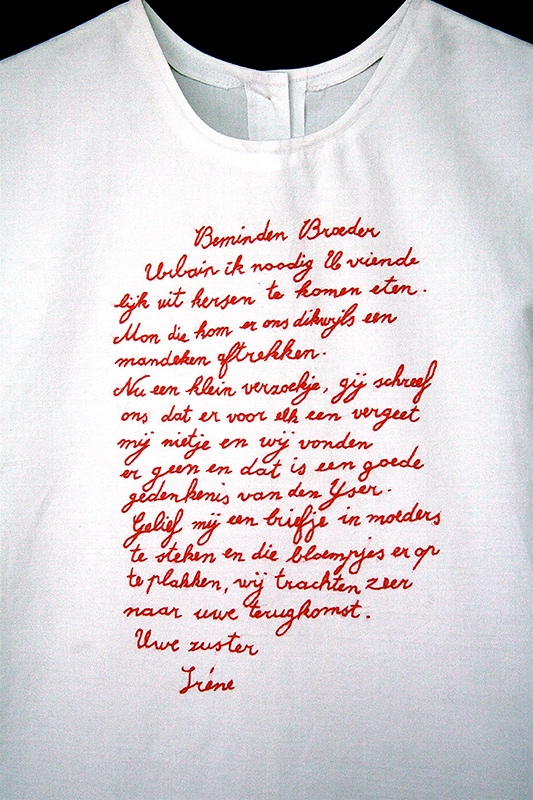 Beminden Broeder
Urbain ik noodig U vriende
lijk uit kersen te komen eten.
Mon die kom er ons dikwijls een
mandeken aftrekken.
Nu een klein verzoekje, gij schreef
ons dat er voor elk een vergeet
mij nietje en wij vonden
er geen en dat is een goede
gedenkenis van den Yser.
Gelief mij een briefje in moeders
te steken en die bloempjes er op
te plakken, wij trachten zeer
naar uwe terugkomst.
Uwe zuster
Iréne